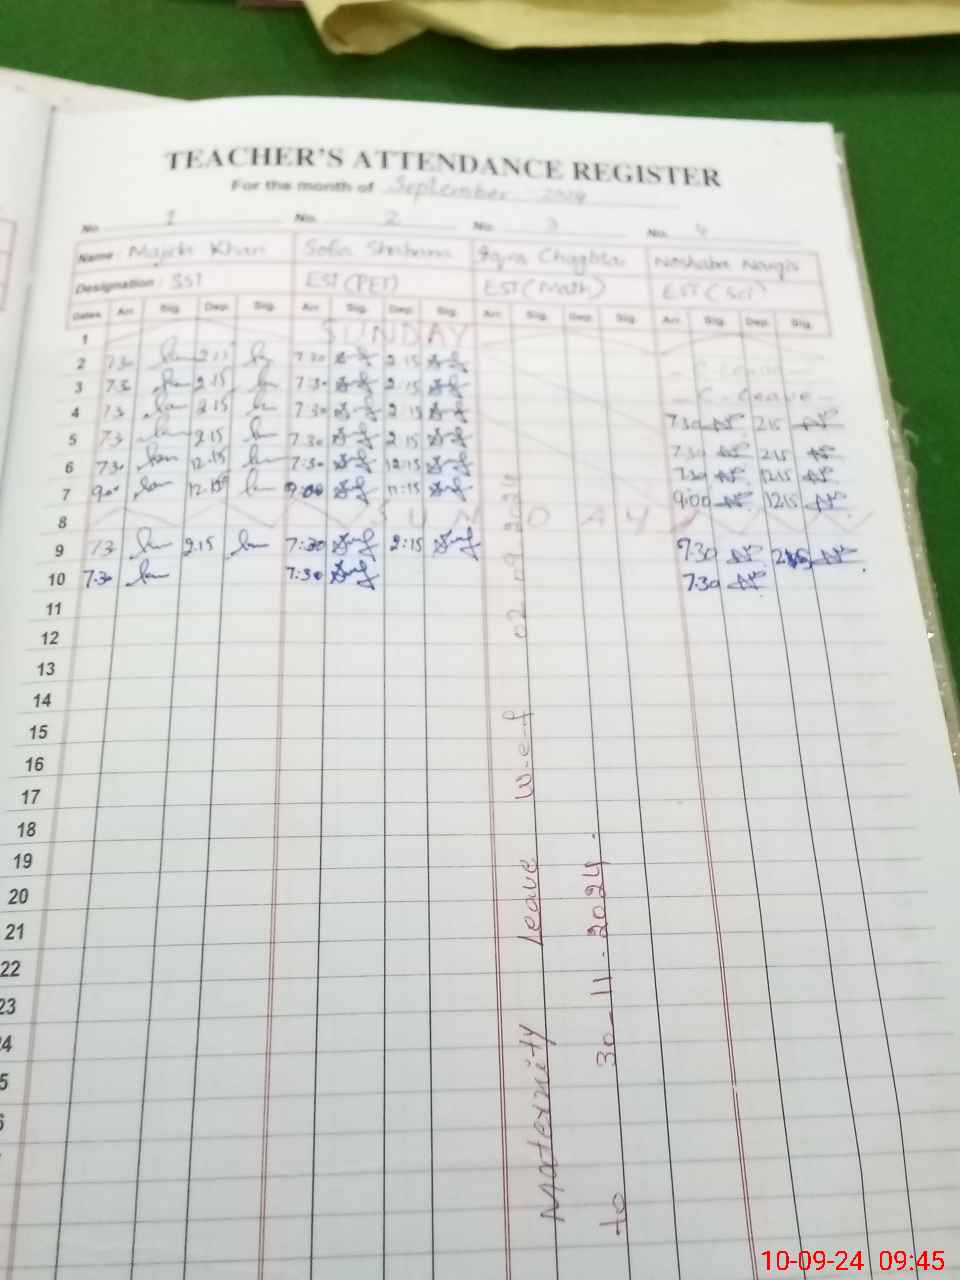 TEACHER'S ATTENDANCE REGISTER
For the month of September 2024
No. 1 No. 2 No. 3 No. 4
Name: Majida Khan Sofia Shabana Iqra Chughtai Noshaba Nargis
Designation: SST EST (PET) EST (Math) EST (Sci)
Dates Arr. Sig. Dep. Sig. Arr. Sig. Dep. Sig. Arr. Sig. Dep. Sig. Arr. Sig. Dep. Sig.
1 SUNDAY
2 7.30 2.15 7.30 2.15 - C. Leave -
3 7.3 2.15 7:30 2:15 - C. Leave -
4 7.3 2.15 7:30 2.15 7.30 2.15
5 7.3 2.15 7.30 2.15 7.30 2.15
6 7.30 12.15 7:30 12:15 7.30 12.15
7 9.00 12.15 9:00 12:15 9:00 12.15
8 SUNDAY
9 7.3 2.15 7:30 2:15 7.30 2.15
10 7.30 7:30 7.30
11
12
13
14
15
16
17
18
19
20
21
22
23
Maternity leave w.e.f 02 09 2024
to 30-11-2024.
10-09-24 09:45